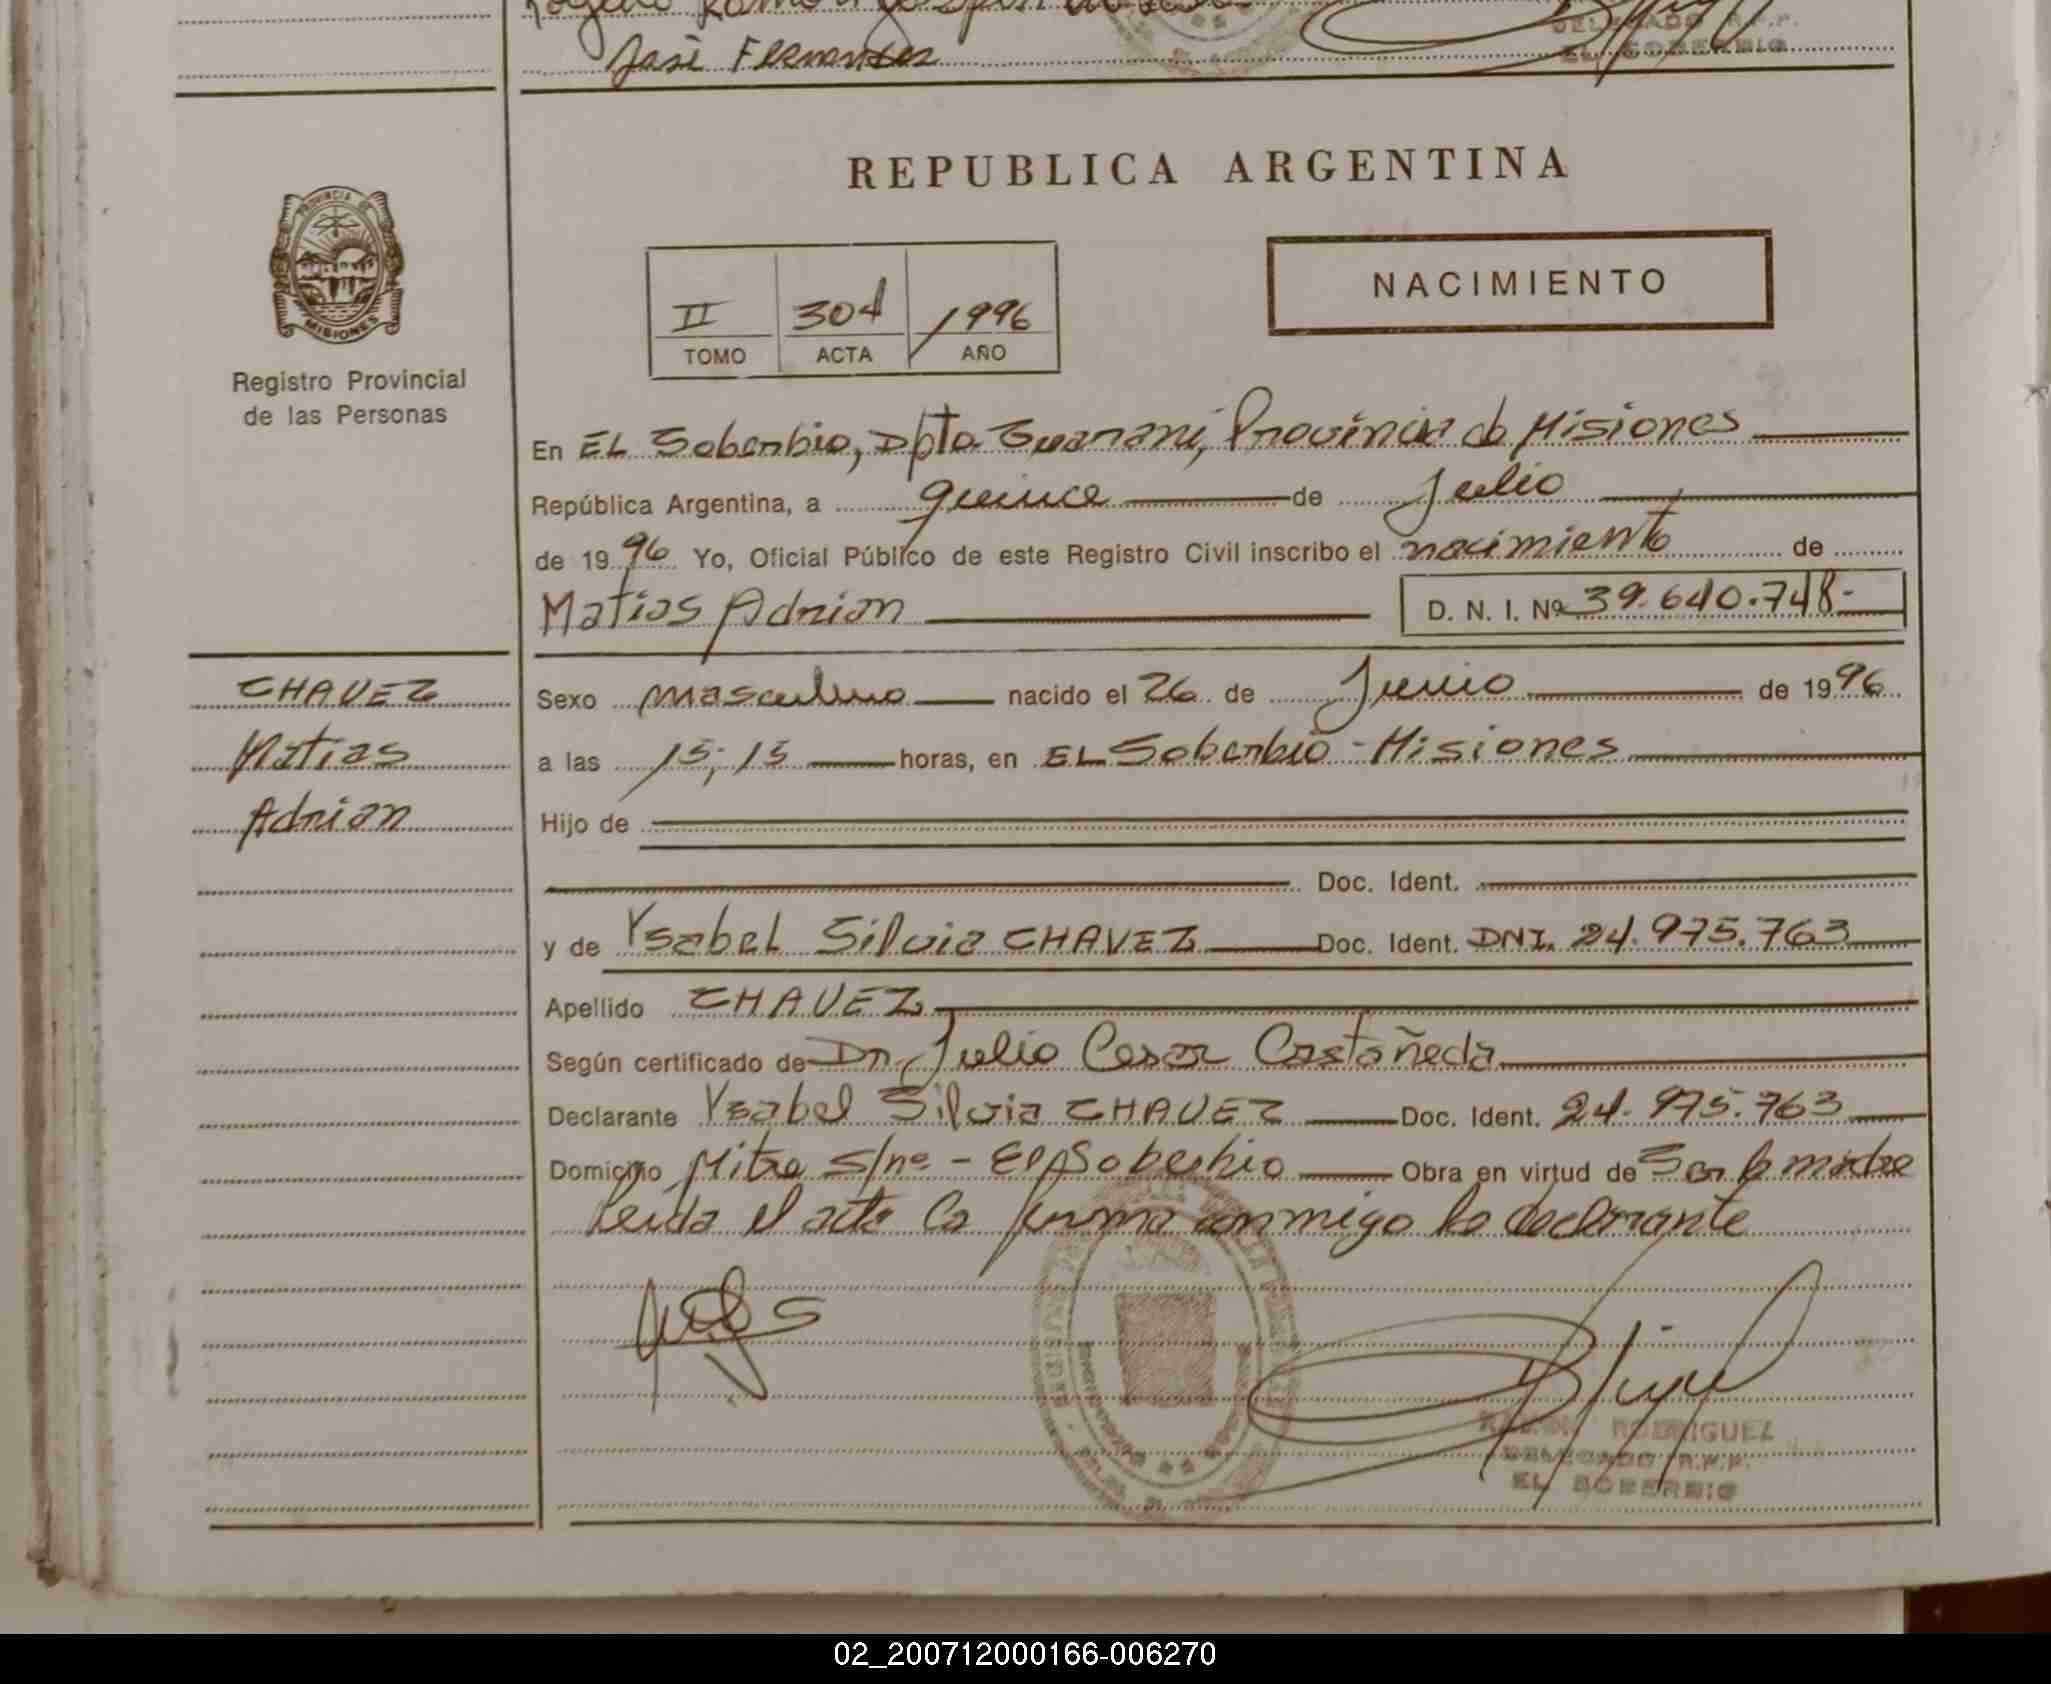 José Fernandez
DELEGADO R.P.P.
EL SOBERBIO
REPUBLICA ARGENTINA
PROVINCIA DE
MISIONES
Registro Provincial
de las Personas
II 304 1996
TOMO ACTA AÑO
NACIMIENTO
En EL Soberbio, Dpto. Guarani, Provincia de Misiones
República Argentina, a quince de Julio
de 1996 Yo, Oficial Público de este Registro Civil inscribo el nacimiento de
Matias Adrian D. N. I. Nº 39.640.748.-
CHAVEZ
Matias
Adrian
Sexo masculino nacido el 26 de Junio de 1996
a las 15,15 horas, en EL Soberbio - Misiones
Hijo de
Doc. Ident.
y de Ysabel Silvia CHAVEZ Doc. Ident. DNI. 24.975.763
Apellido CHAVEZ
Según certificado de Dr. Julio Cesar Castañeda
Declarante Ysabel Silvia CHAVEZ Doc. Ident. 24.975.763
Domicilio Mitre s/nº - El Soberbio Obra en virtud de Ser la madre
Leida el acta la firma conmigo la declarante
RODRIGUEZ
DELEGADO R.P.P.
EL SOBERBIO
02_200712000166-006270